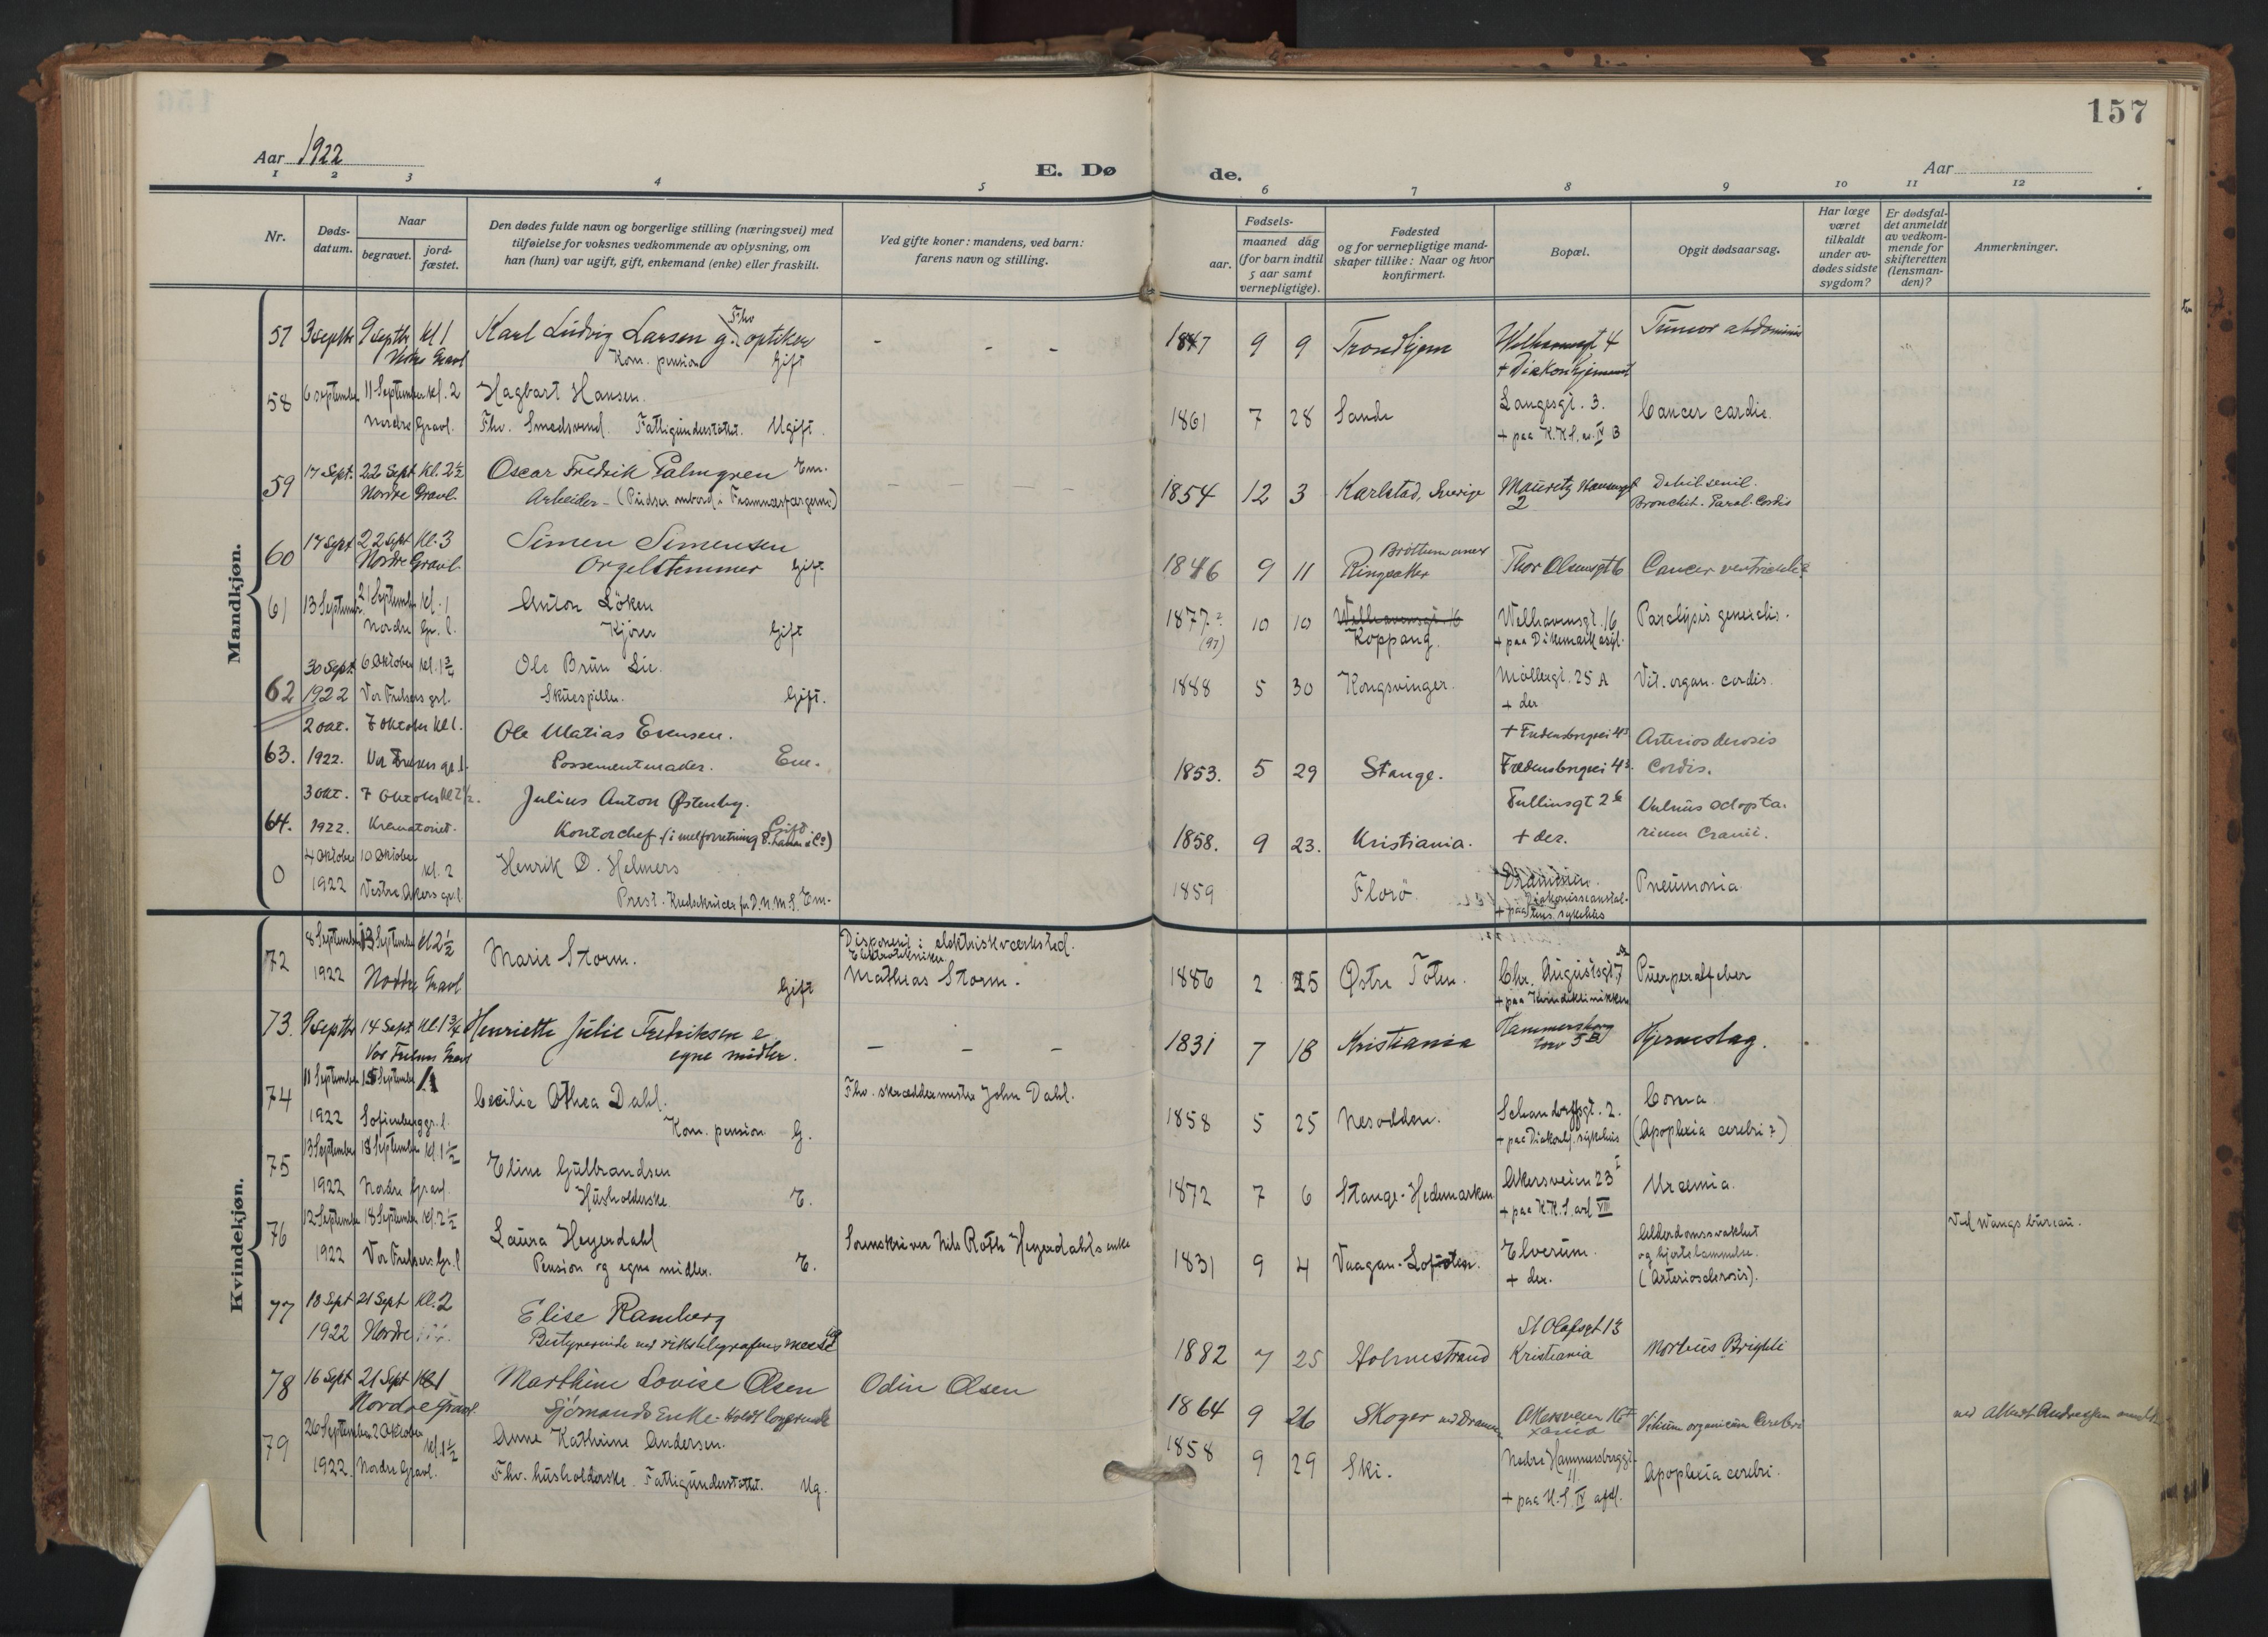 157
Aar 1922
E. Døde.
Aar
1 2 3 4 5 6 7 8 9 10 11 12
Nr.
Døds-
datum.
Naar
begravet.
jord-
fæstet.
Den dødes fulde navn og borgerlige stilling (næringsvei) med
tilføielse for voksnes vedkommende av oplysning, om
han (hun) var ugift, gift, enkemand (enke) eller fraskilt.
Ved gifte koner: mandens, ved barn:
farens navn og stilling.
Fødsels-
aar.
maaned dag
(for barn indtil
5 aar samt
vernepligtige).
Fødested
og for vernepligtige mand-
skaper tillike: Naar og hvor
konfirmert.
Bopæl.
Opgit dødsaarsag.
Har læge
været
tilkaldt
under av-
dødes sidste
sygdom?
Er dødsfal-
det anmeldt
av vedkom-
mende for
skifteretten
(lensman-
den)?
Anmerkninger.
Mandkjøn.
57 3 septbr 9 septbr kl 1 Karl Ludvig Larsen g. Fhv optiker - - - 1847 9 9 Trondhjem 4 Tumor abdominis
Nordre Gravl Kom. pension Gift + Diakonhjemmet
58 6 september 11 September kl. 2 Hagbart Hansen. 1861 7 28 Sande Langesgt. 3. Cancer cardie.
Nordre Gravl. Fhv. Smedsvend. Fattigunderstøttet. Ugift. + paa K.K.S. av. IV B
59 17 Sept. 22 Sept kl. 2½ Oscar Fredrik Palmgren Em. 1854 12 3 Karlstad, Sverige Mauritz Hansensgt Debil. senil.
Nordre Gravl. Arbeider - (Pudser ombord i) 2 Bronchit. Paral. Cordis
60 17 Sept 22 Sept Kl. 3 Simen Simensen 1846 9 11 Brøttum annex Thor Olsensgt 6 Cancer ventriculi
Nordre Gravl. Orgelstemmer Gift Ringsaker
61 13 September 21 September kl. 1 Anton Löken 1877? 10 10 Welhavensgt. 16 Welhavensgt. 16 Paralysis generalis.
Nordre Gr. l. Kjörer Gift (97) Koppang. + paa Dikemark asyl.
62 30 Sept. 6 Oktober kl. 1¾ Ole Brun Lie. 1888 5 30 Kongsvinger. Möllergt. 25 A Vit. organ. cordis.
1922 Vor Frelsers grl. Skuespiller. Gift. + der
63. 2 okt. 7 oktober kl 1. Ole Matias Evensen. + Fredensborgvei 43 Arteriosclerosis
1922. Vor Frelsers gr. l. Possementmaker. Em. 1853. 5 29 Stange. Fredensborgvei 43. Cordis.
64. 3 okt. 7 oktober kl 2½. Julius Anton Østenby. Tullinsgt 2 Vulnus
1922. Krematoriet. Kontorchef (i melforretning) Gift. 1858. 9 23. Kristiania. + der. Cranii.
0 4 Oktober 10 Oktober kl. 2 Henrik O. Helmers 1859 Florö. Pneumonia
1922 Vestre Akers gr.l. Prest. Kredsekretær for D.N.M.S. Em. Diakonisseanstal-
+ paa tens sykehus
Kvindekjøn.
72 8 September 13 September kl 2½ Marie Storm. Disponent i elektriskværksted.
Elektrotekniker
1922 Nordre Gravl Gift Mathias Storm. 1886 2 25 Østre Toten. Chr. Augustsgt 7 Puerperalfeber
+ paa Kvindeklinikken
73. 9 septbr 14 Sept kl. 1¾ Henriette Julie Fredriksen e - - - 1831 7 18 Kristiania Hammersborg Hjerneslag.
Vor Frelsers Gravl egne midler. torv 5 B
74 11 September 15 September 1 Cecilie Othea Dahl. Fhv. skræddermester John Dahl. 1858 5 25 Nesodden. Schandorffsgt. 2. Coma
1922 Sofienberg gr. l. Kom. pension G. + paa Diakonhj. sykehus (Apoplexia cerebri?)
75 13 September 18 September kl 1½ Eline Gulbrandsen 1872 7 6 Stange - Hedemarken Akersveien 23 I Uræmia.
1922 Nordre Gravl. Husholderske E. + paa K.K.S. avd VIII
76 12 September 18 September kl. 2½ Laura Heyerdahl Sorenskriver Nils Roth Heyerdahls enke 1831 9 4 Vaagan - Lofoten. Elverum. Alderdomssvakhet Ved Wangs bureau.
1922 Vor Frelsers Gr. l Pension og egne midler. E. + der. og hjertelammelse.
(Arteriosclerosis).
77 18 Sept 21 Sept kl. 2 Elise Ramberg 1882 7 25 Holmestrand St Olafsgt 13 Morbus Brighti
1922 Nordre Bestyrerinde ved rikstelegrafens messe Ug Kristiania
78 16 Sept 21 Sept Kl 1 Marthine Lovise Olsen Odin Olsen 1864 9 26 Skoger ved Drammen Akersveien 16 Vitium organicum Cerebri ved Albert Andresen
Nordre Gravl. Sjömands Enke. Holdt logerende
79 26 September 2 Oktober kl. 1½ Anne Kathrine Andersen. 1858 9 29 Ski. Nedre Hammersborggt Apoplexia cerebri.
1922 Nordre Gravl. Fhv. husholderske. Fattigunderstøttet. Ug. 11
+ paa U.S. IV afdl.